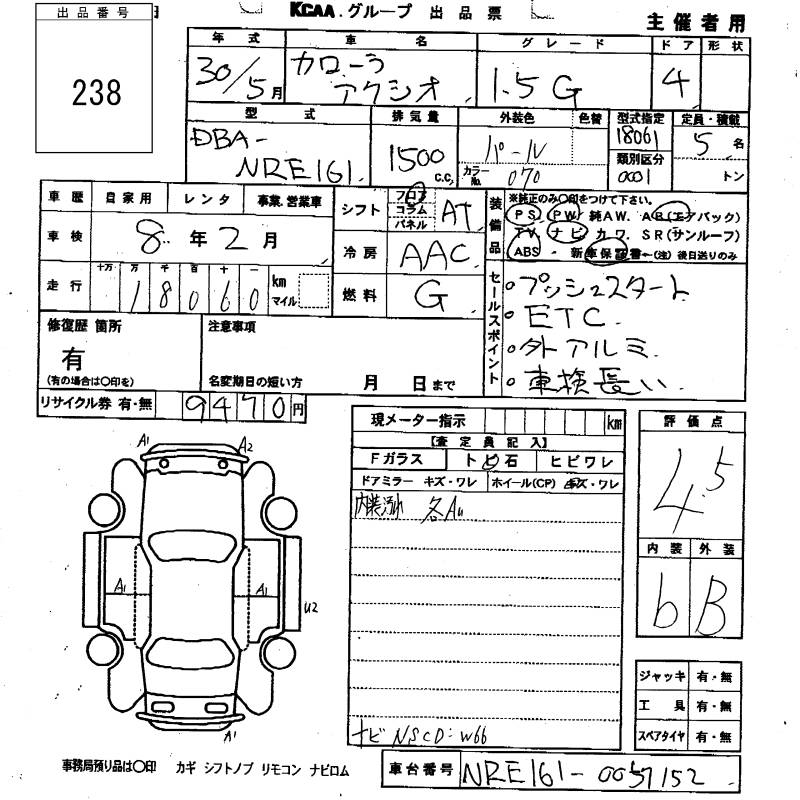 出品番号
238
KCAA.グループ 出品票
主催者用
年式 車名 グレード ドア 形状
30/5月 カローラ アクシオ 1.5G 4
型式 排気量 外装色 色替 型式指定 定員・積載
DBA-NRE161 1500 c.c. パール 18061 5名
カラーNo. 070 類別区分 0001 トン
車歴 自家用 レンタ 事業.営業車
車検 8年2月
走行 十万 万 千 百 十 一
18060 km マイル
シフト フロア コラム パネル AT
冷房 AAC
燃料 G
装備品 ※純正のみ○印をつけて下さい。
PS PW 純AW. AB(エアバック)
TV ナビ カワ. SR(サンルーフ)
ABS 新車保証書←(注)後日送りのみ
セールスポイント
・プッシュスタート
・ETC.
・外アルミ.
・車検長い.
修復歴 箇所
有
(有の場合は○印を)
注意事項
名変期日の短い方 月 日まで
リサイクル券 有・無 9470円
現メーター指示 km
【査定員記入】
Fガラス トビ石 ヒビワレ
ドアミラー キズ・ワレ ホイール(CP) キズ・ワレ
内装汚れ 各A
ナビ NSCD:W66
評価点
4.5
内装 外装
b B
A1 A2
A1 A1 U2
A1
ジャッキ 有・無
工具 有・無
スペアタイヤ 有・無
事務局預り品は○印 カギ シフトノブ リモコン ナビロム
車台番号 NRE161-0057152